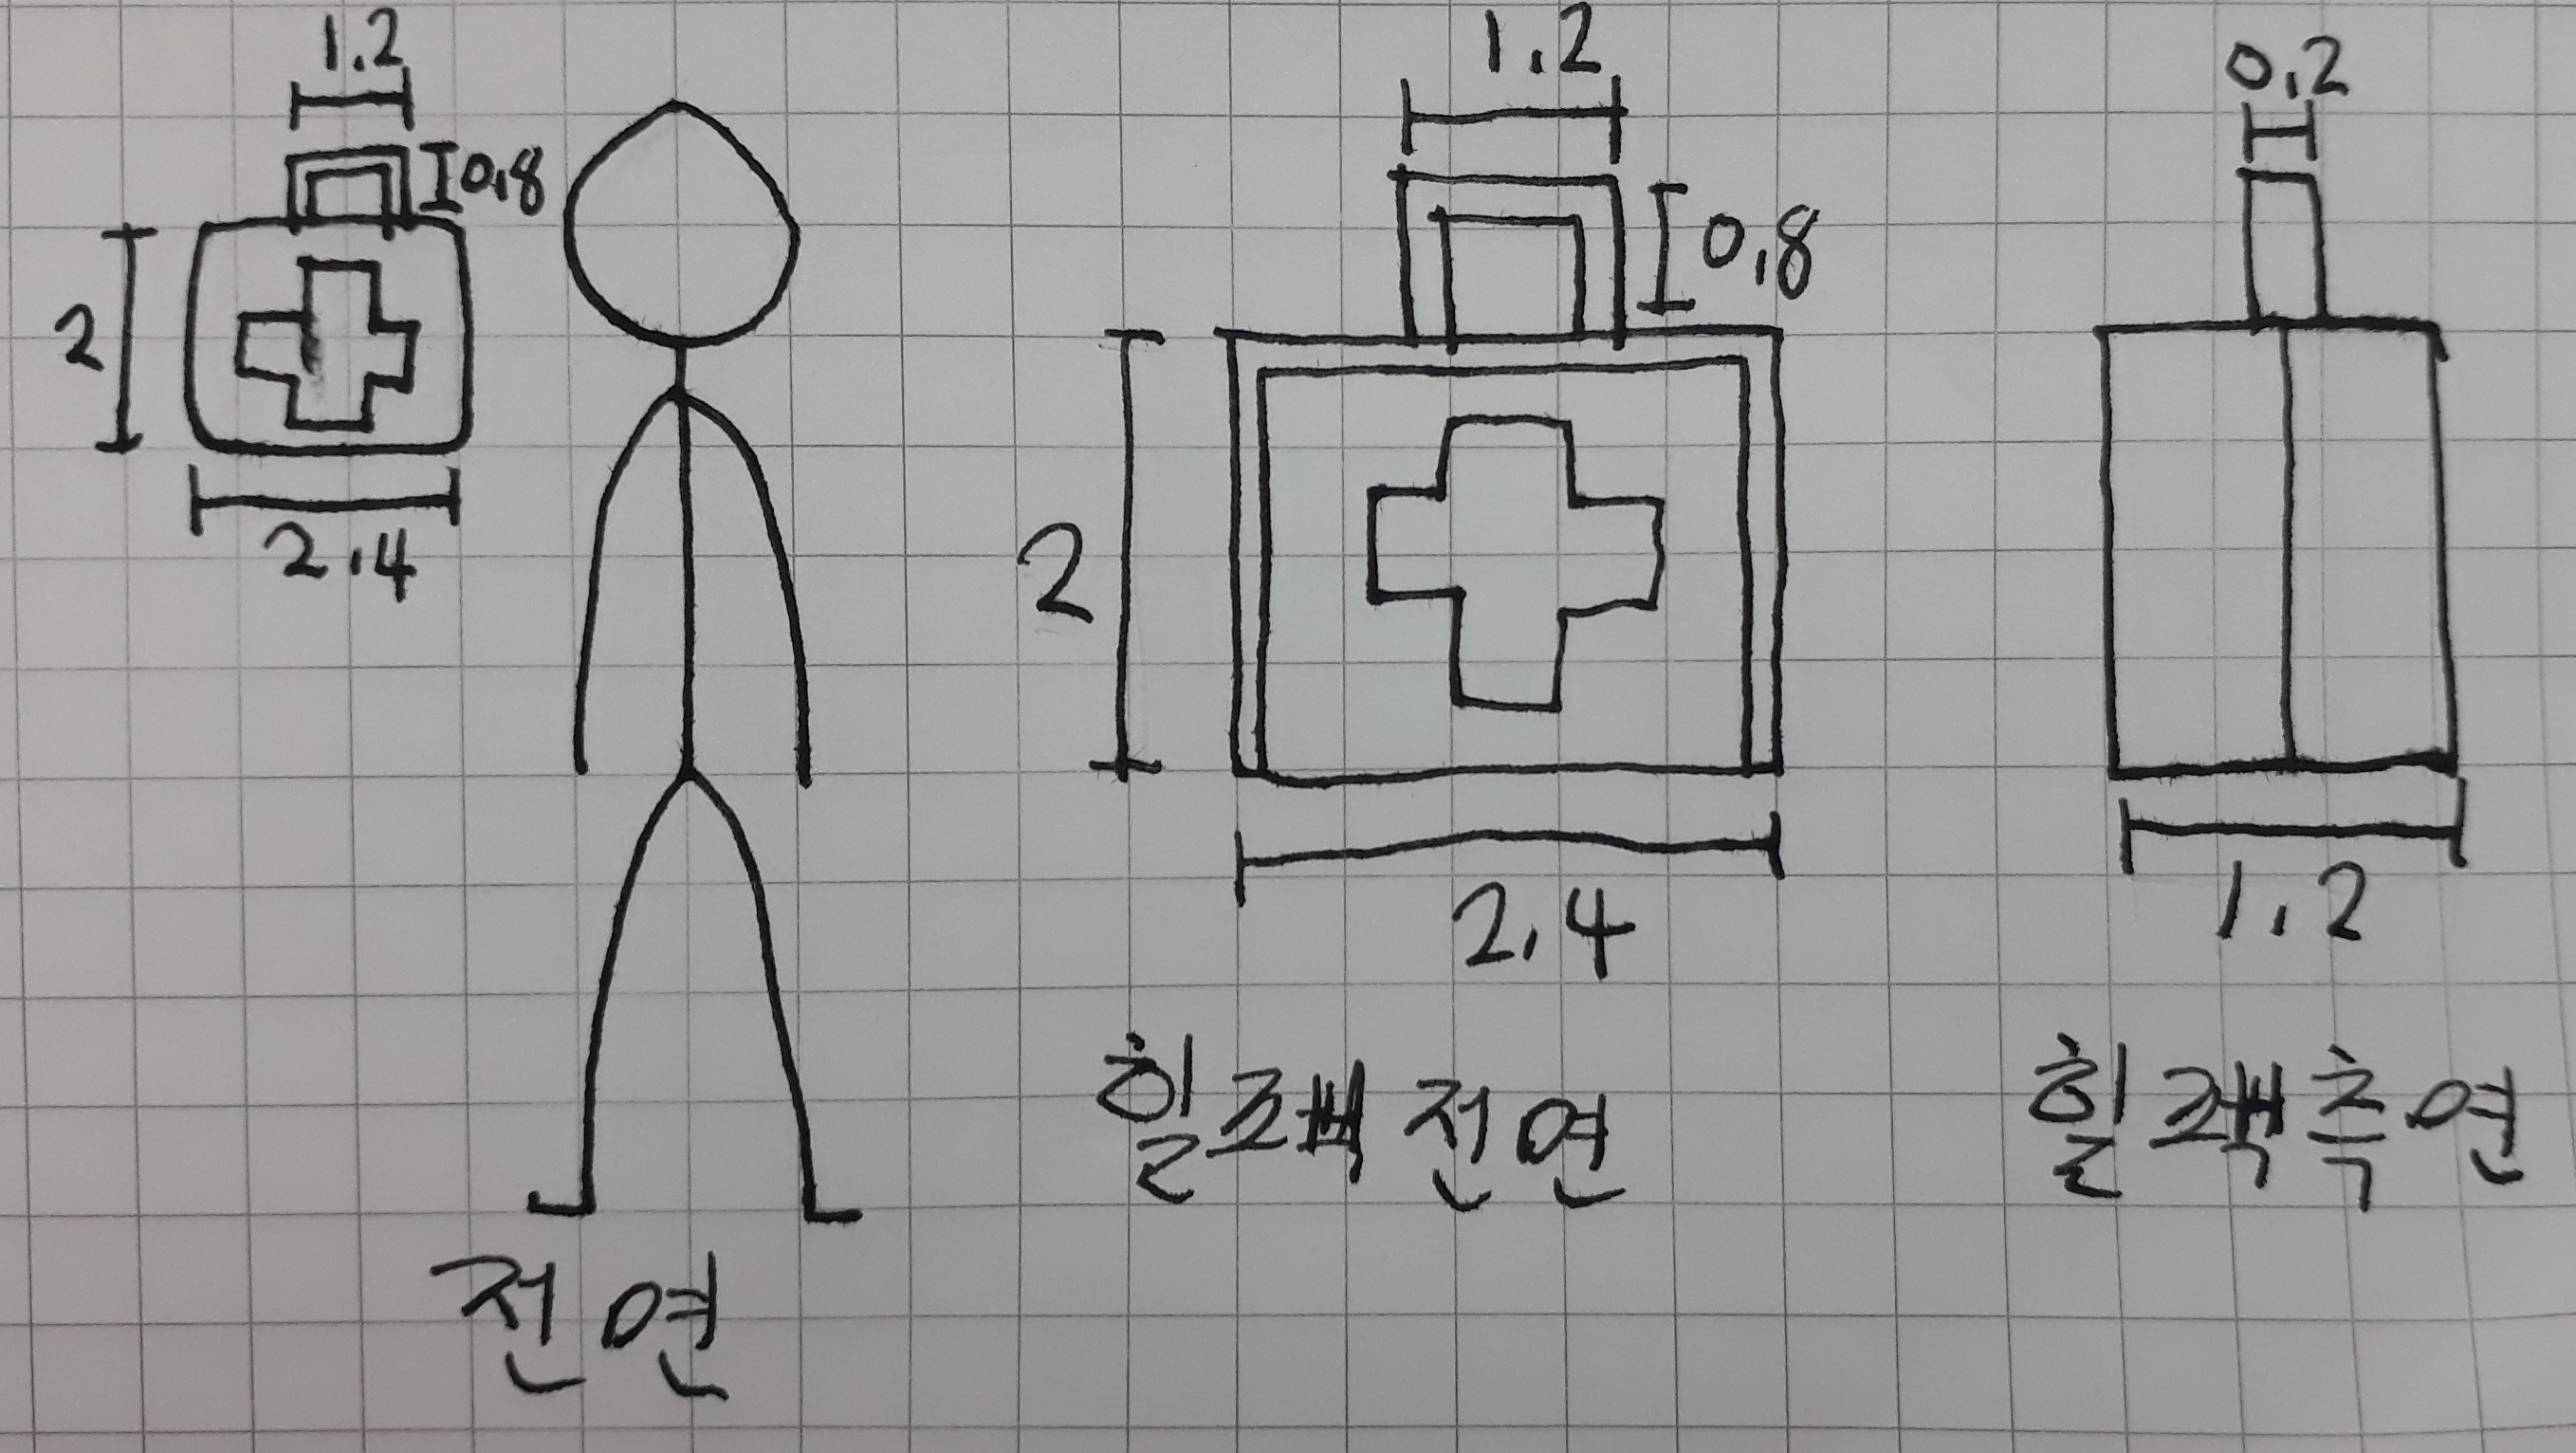 1.2
0.8
2
2.4
전면
1.2
0.8
2
2.4
힐팩 전면
0.2
1.2
힐팩 측면